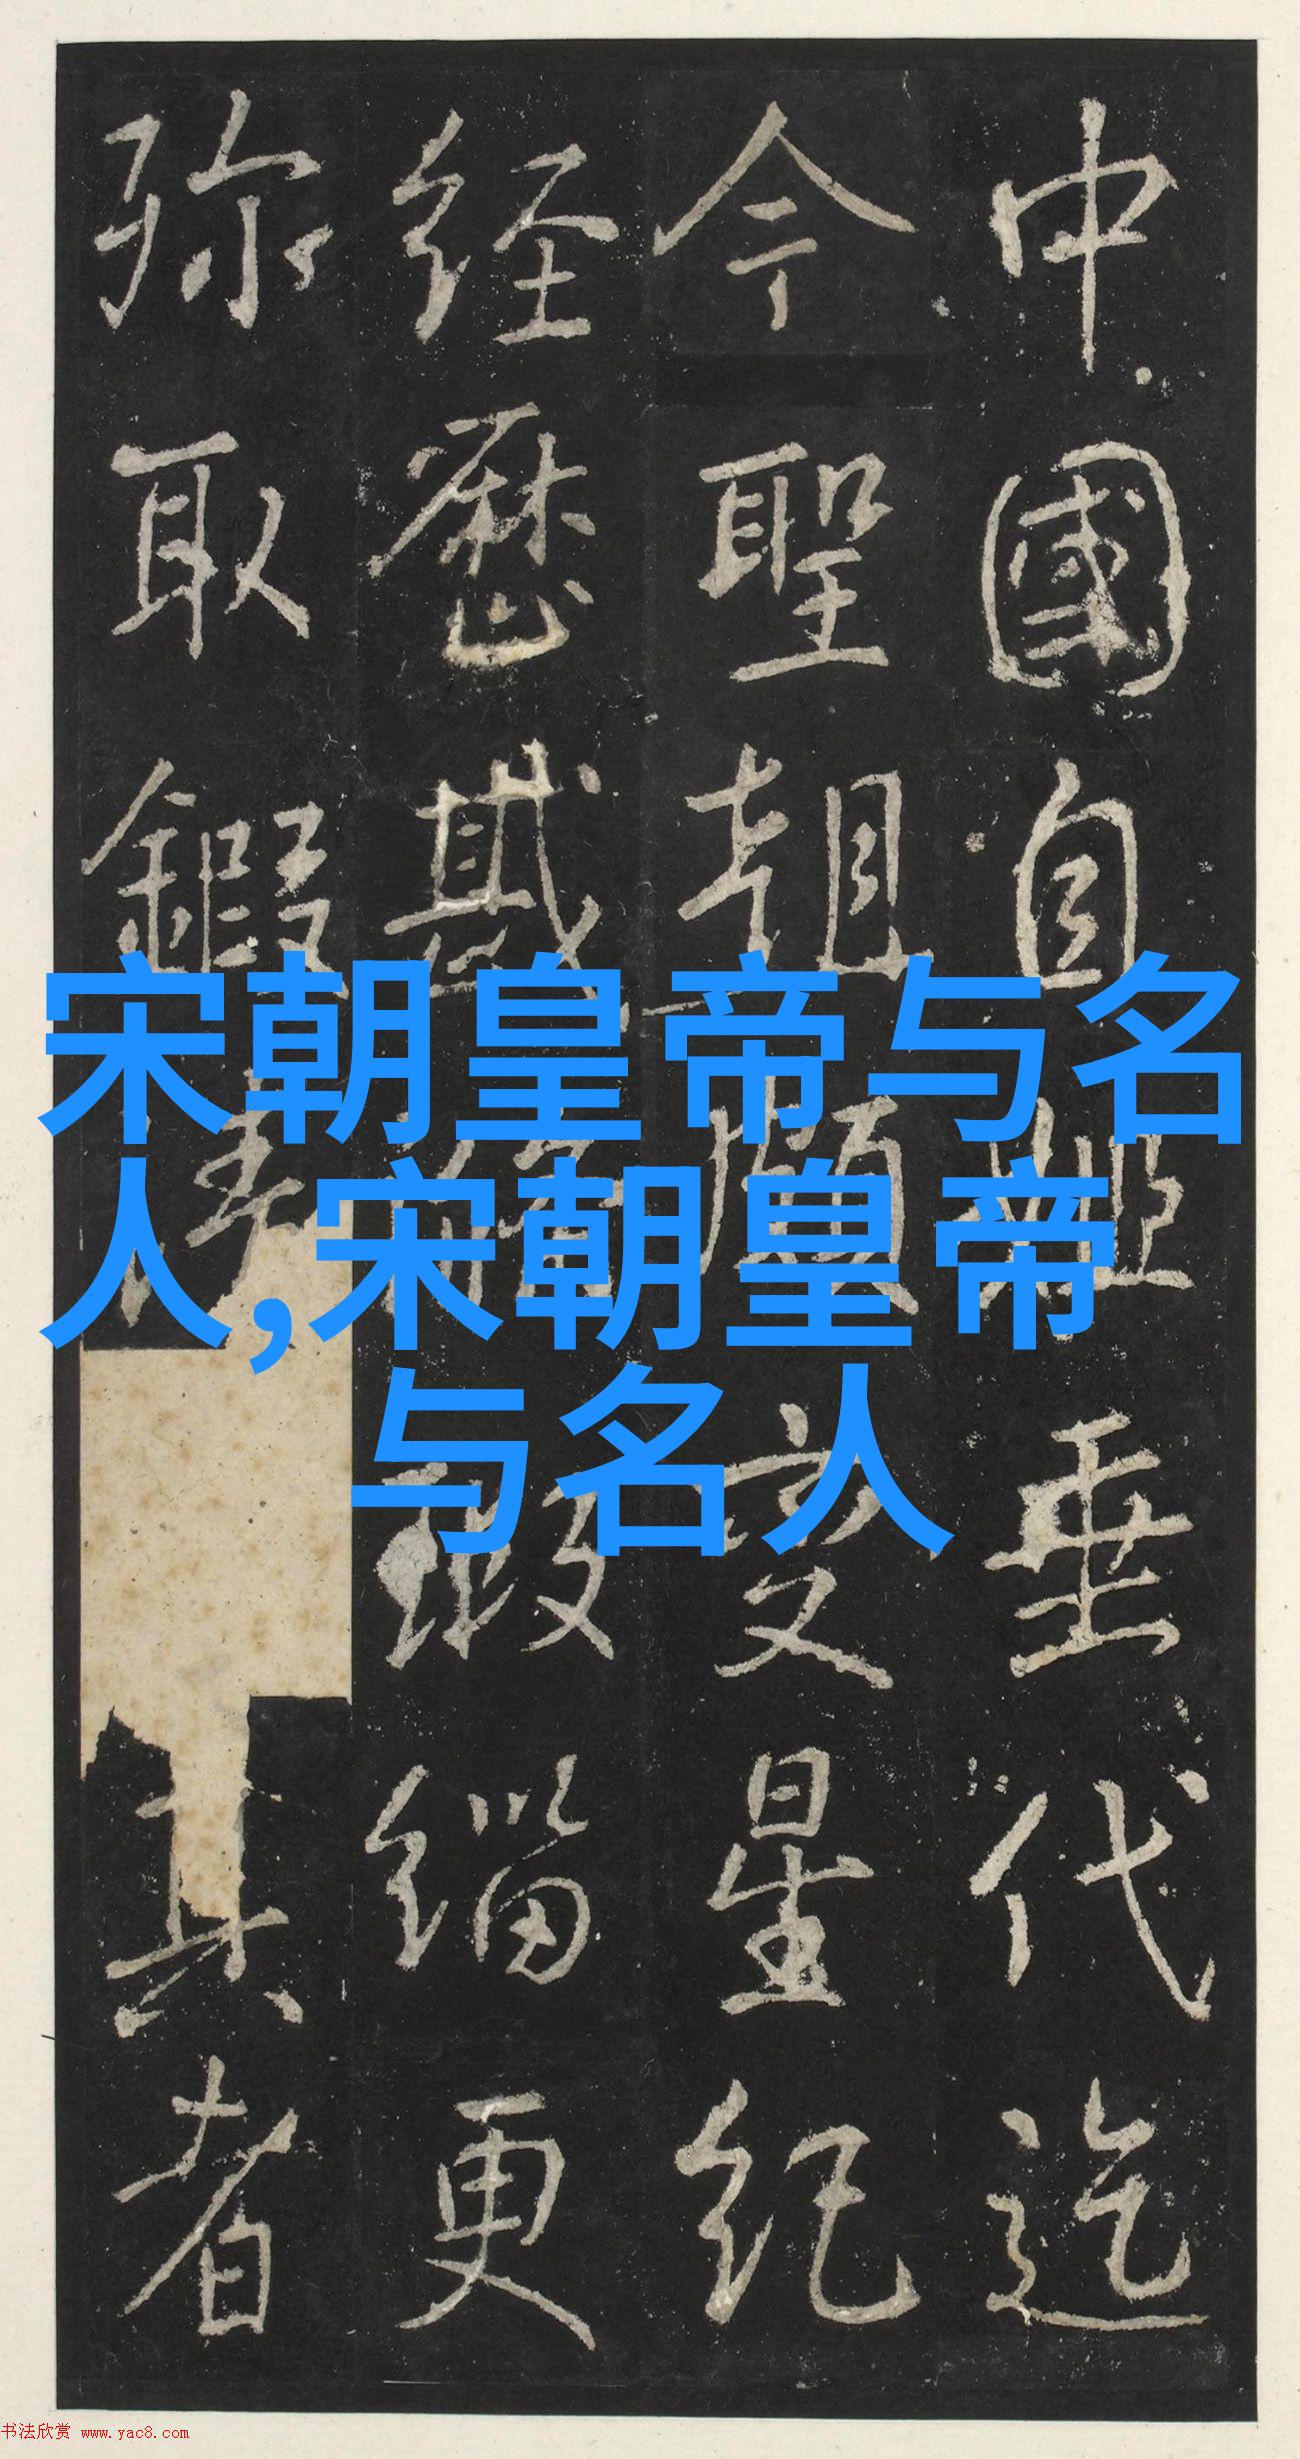 宋朝皇帝与名
人,宋朝皇帝
与名人
中國自垂代迄
今聖朝星紀
经歷緇更
弥取真者
书法欣赏 www.yac8.com